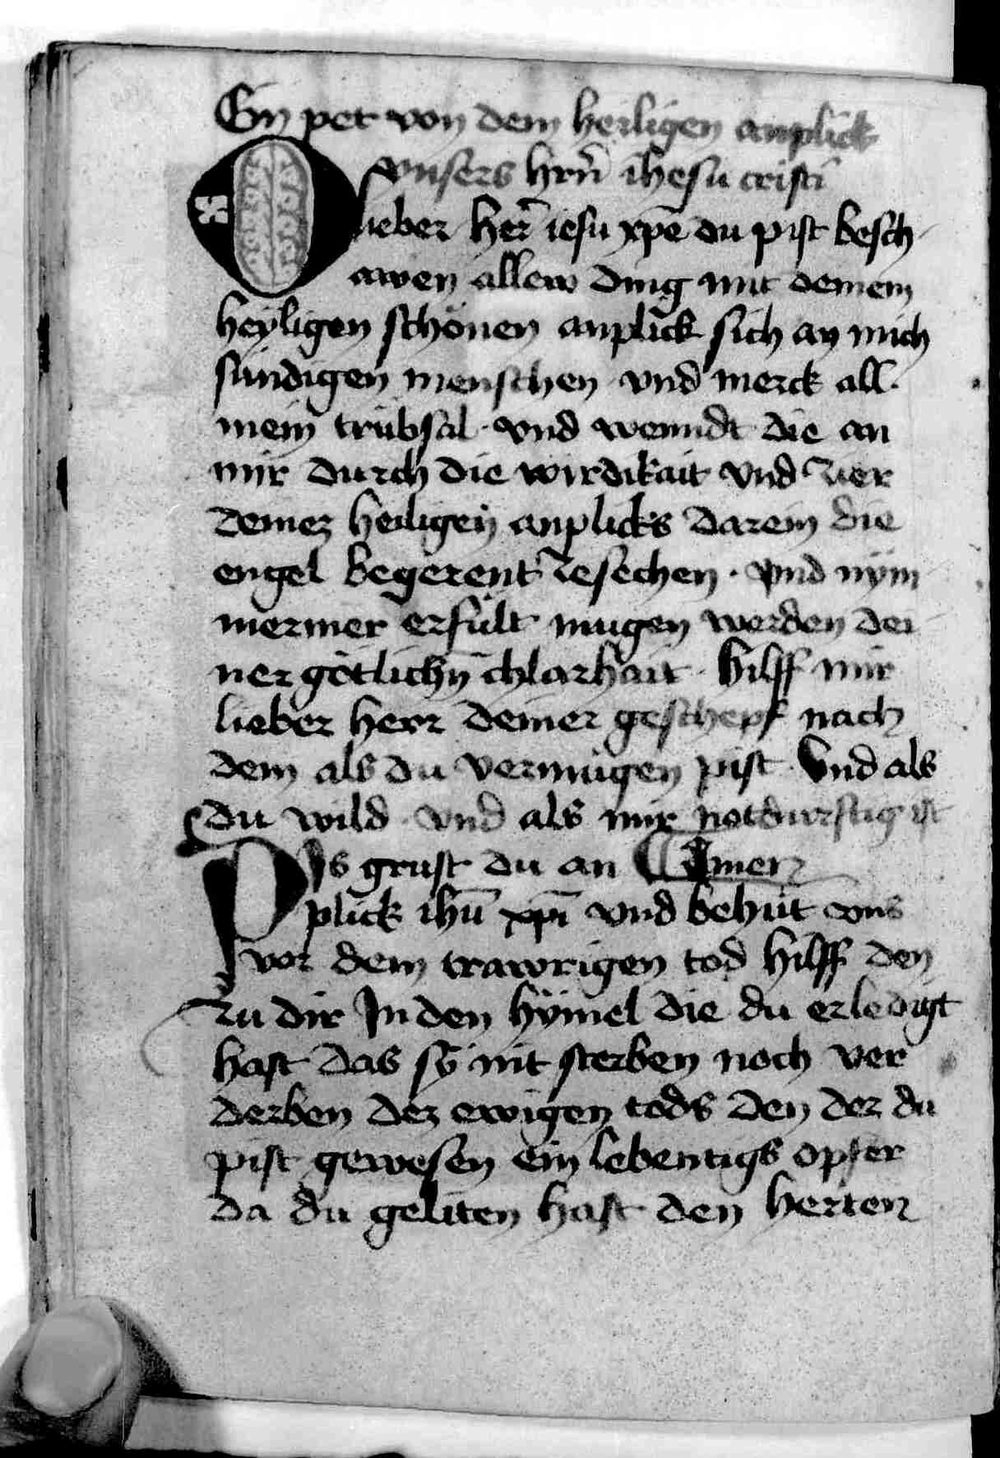 Ein pet von dem heiligen anplick
vnsers hrñ ihesu cristi
O lieber her̄ iesu xpē du pist besch
awen allew ding mit deinem
heyligen schönen anplick sich an mich
sündigen menschen vnd merck all
mein trübsal · vnd wenndt die an
mir durch die wirdikait vnd zier
deinez heiligen anplicks darein die
engel begerent zesechen · vnd nym
mermer erfült mugen werden dei
ner götlichn̄ chlarhait · hilff mir
lieber herr deiner geschepf nach
dem als du vermügen pist Vnd als
du wild · vnd als mir notdurftig ist
Pis grust du an
plick ihū xpī vnd behüt vns
vor dem trawrigen tod hilff den
zu dir In den hymel die du erledigt
hast das sy nit sterben noch ver
derben dez ewigen tods den der du
pist gewesen ein lebentigs opfer
da du geliten hast den herten